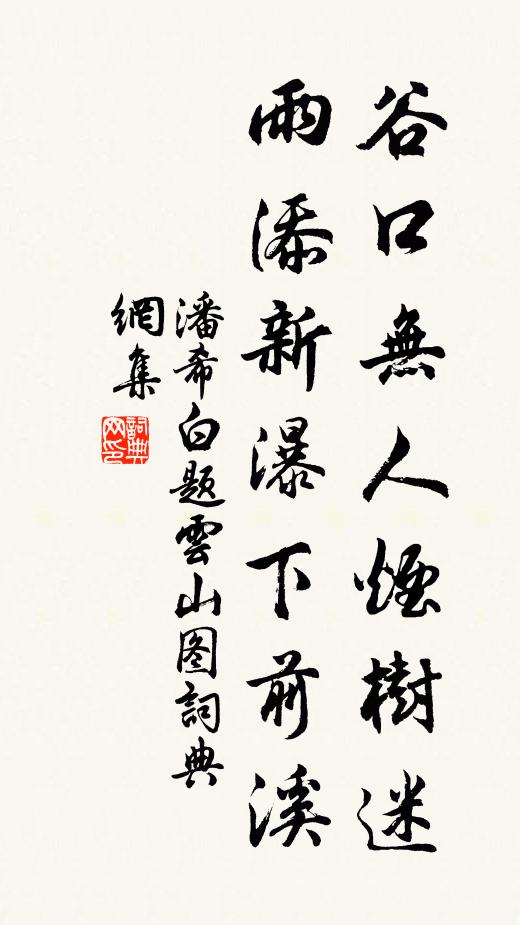 谷口無人煙樹迷
雨添新瀑下前溪
潘希白题雲山图詞典
網集
詞典
网印